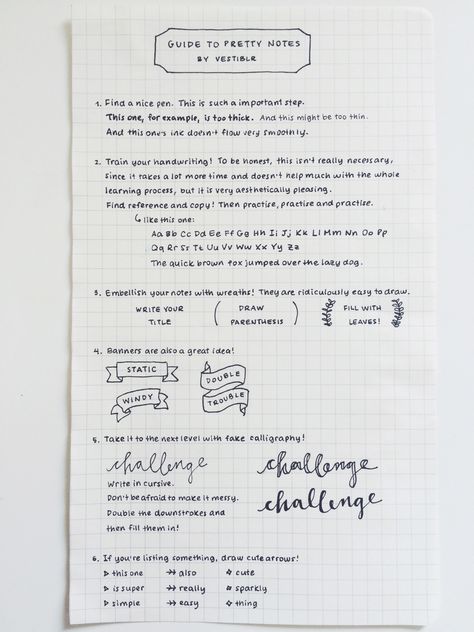 GUIDE TO PRETTY NOTES
BY VESTIBLR
1. Find a nice pen. This is such a important step.
This one, for example, is too thick. And this might be too thin.
And this one's ink doesn't flow very smoothly.
2. Train your handwriting! To be honest, this isn't really necessary,
since it takes a lot more time and doesn't help much with the whole
learning process, but it is very aesthetically pleasing.
Find reference and copy! Then practise, practise and practise.
↳ like this one:
Aa Bb Cc Dd Ee Ff Gg Hh Ii Jj Kk Ll Mm Nn Oo Pp
Qq Rr Ss Tt Uu Vv Ww Xx Yy Zz
The quick brown fox jumped over the lazy dog.
3. Embellish your notes with wreaths! They are ridiculously easy to draw.
WRITE YOUR TITLE
( DRAW PARENTHESIS )
FILL WITH LEAVES!
4. Banners are also a great idea!
STATIC
DOUBLE
WINDY
TROUBLE
5. Take it to the next level with fake calligraphy!
challenge
Write in cursive.
Don't be afraid to make it messy.
Double the downstrokes and
then fill them in!
challenge
challenge
6. If you're listing something, draw cute arrows!
▷ this one ↠ also ✧ cute
▷ is super ↠ really ✧ sparkly
▷ simple ↠ easy ✧ thing